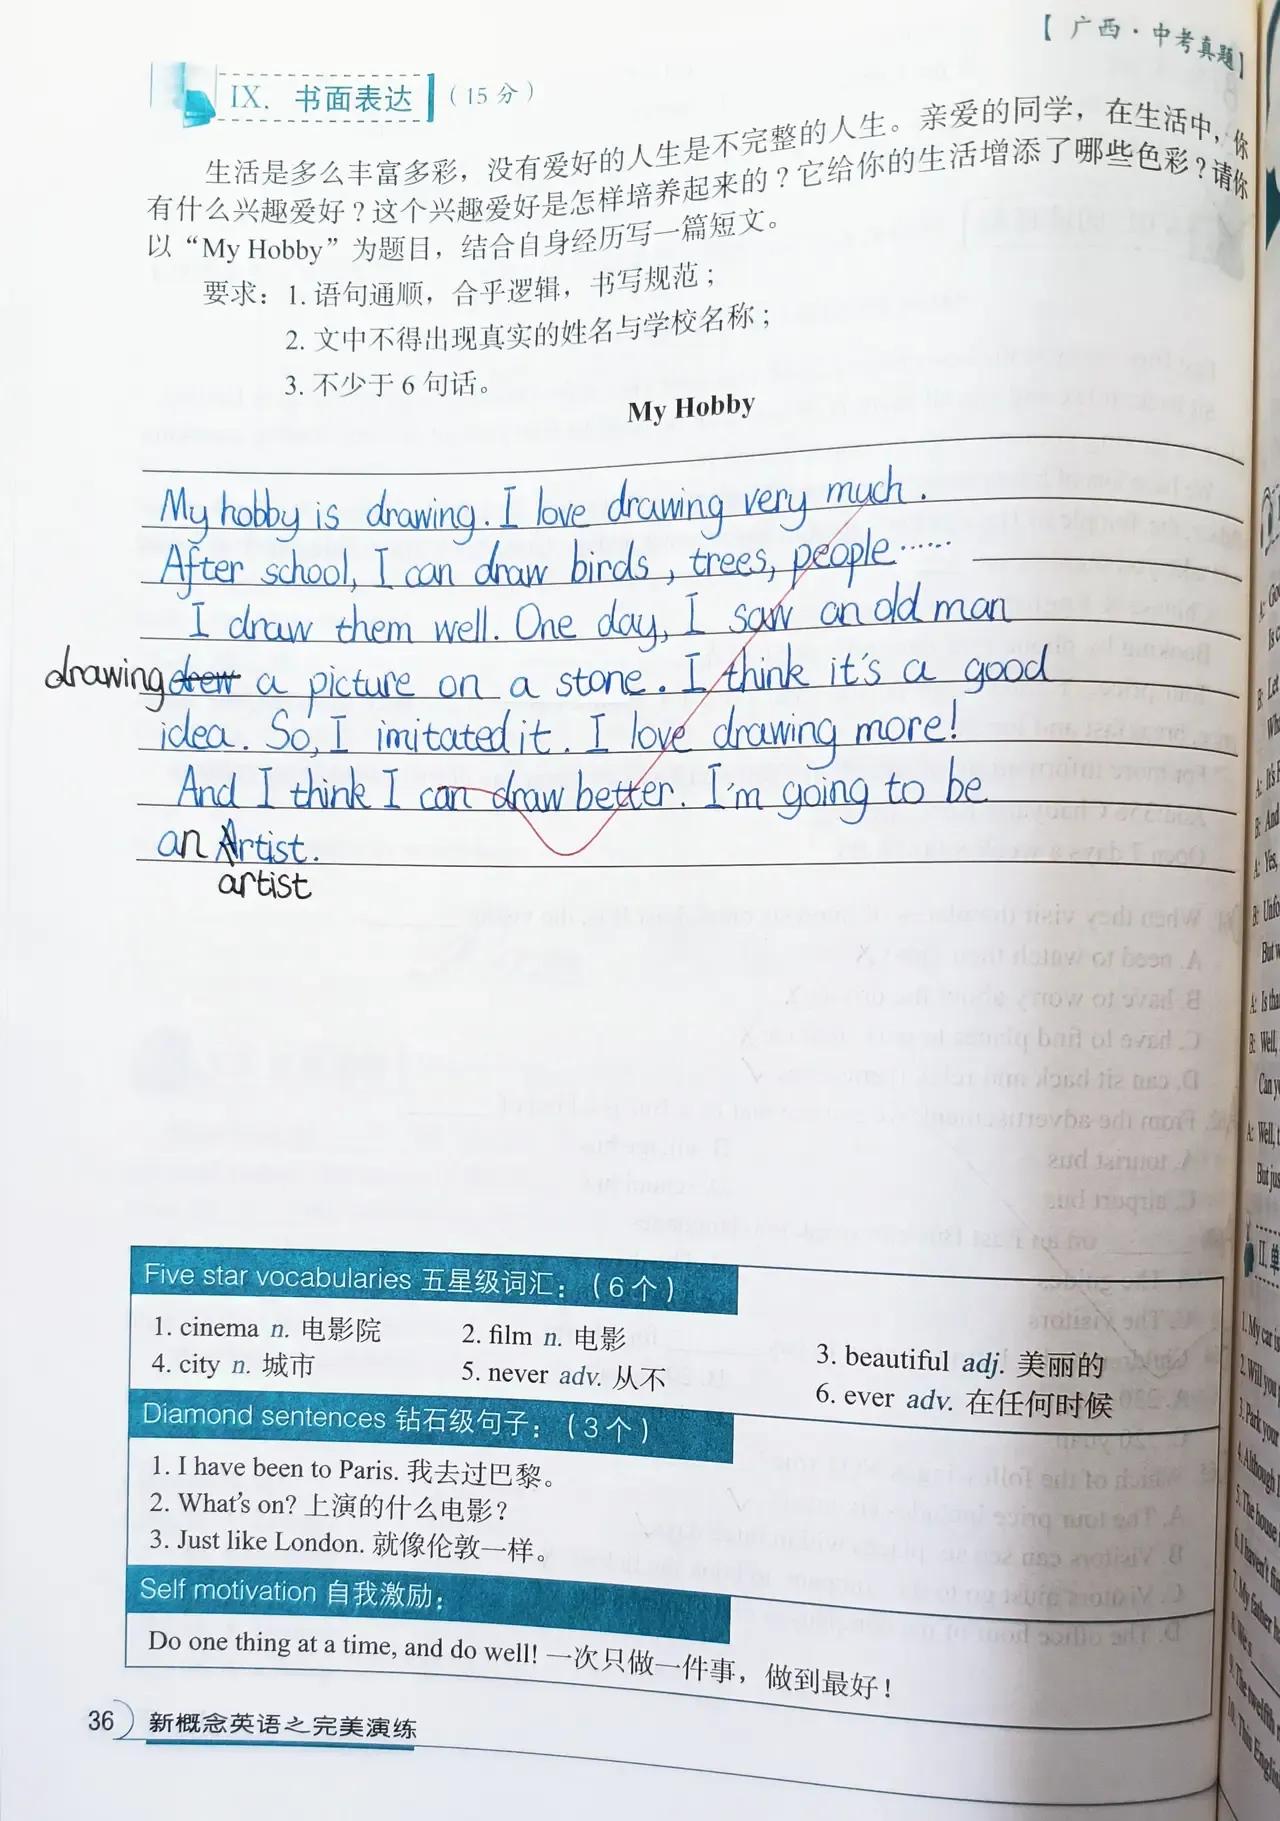 【广西·中考真题】
IX. 书面表达 (15分)
生活是多么丰富多彩，没有爱好的人生是不完整的人生。亲爱的同学，在生活中，你
有什么兴趣爱好？这个兴趣爱好是怎样培养起来的？它给你的生活增添了哪些色彩？请你
以“My Hobby”为题目，结合自身经历写一篇短文。
要求：1. 语句通顺，合乎逻辑，书写规范；
2. 文中不得出现真实的姓名与学校名称；
3. 不少于6句话。
My Hobby
My hobby is drawing. I love drawing very much.
After school, I can draw birds, trees, people……
I draw them well. One day, I saw an old man
drawing drew a picture on a stone. I think it's a good
idea. So, I imitated it. I love drawing more!
And I think I can draw better. I'm going to be
an Artist.
artist
Five star vocabularies 五星级词汇：（6个）
1. cinema n. 电影院 2. film n. 电影 3. beautiful adj. 美丽的
4. city n. 城市 5. never adv. 从不 6. ever adv. 在任何时候
Diamond sentences 钻石级句子：（3个）
1. I have been to Paris. 我去过巴黎。
2. What's on? 上演的什么电影？
3. Just like London. 就像伦敦一样。
Self motivation 自我激励：
Do one thing at a time, and do well! 一次只做一件事，做到最好！
36 新概念英语之完美演练